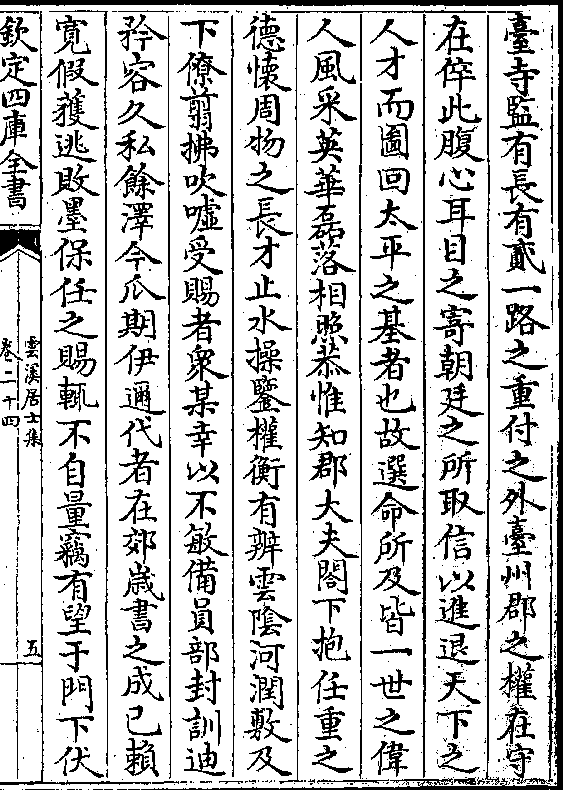 臺寺監有長有貳一路之重付之外臺州郡之權在守
在倅此腹心耳目之寄朝廷之所取信以進退天下之
人才而圖回太平之基者也故選命所及皆一世之偉
人風采英華磊落相照恭惟知郡大夫閤下抱任重之
德懷周物之長才止水操鑒權衡有辨雲陰河潤敷及
下僚翦拂吹噓受賜者衆某幸以不敏備員部封訓迪
矜容久私餘澤今瓜期伊邇代者在郊歳書之成已賴
寛假獲逃敗墨保任之賜輒不自量竊有望于門下伏
欽定四庫全書
雲溪居士集
卷二十四
五